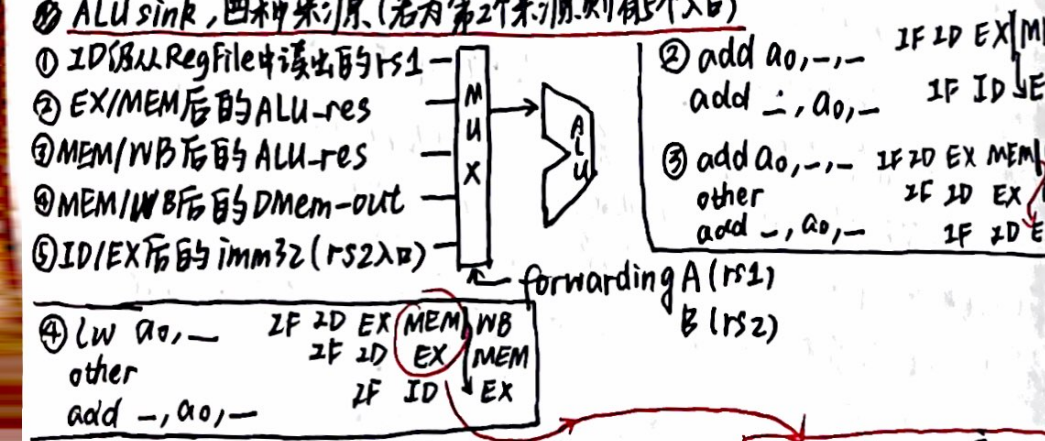 ALU sink, 四种来源.(若为第2个来源则有5个入口)
① ID级从RegFile中读出的rs1
② EX/MEM后的ALU-res
③ MEM/WB后的ALU-res
④ MEM/WB后的DMem-out
⑤ ID/EX后的imm32(rs2入口)
MUX
ALU
forwarding A (rs1)
B (rs2)
② add a0,-,- IF ID EX M
add -, a0,- IF ID E
③ add a0,-,- IF ID EX MEM
other IF ID EX
add -, a0,- IF ID E
④ lw a0,- IF ID EX MEM WB
other IF ID EX MEM
add -, a0,- IF ID EX